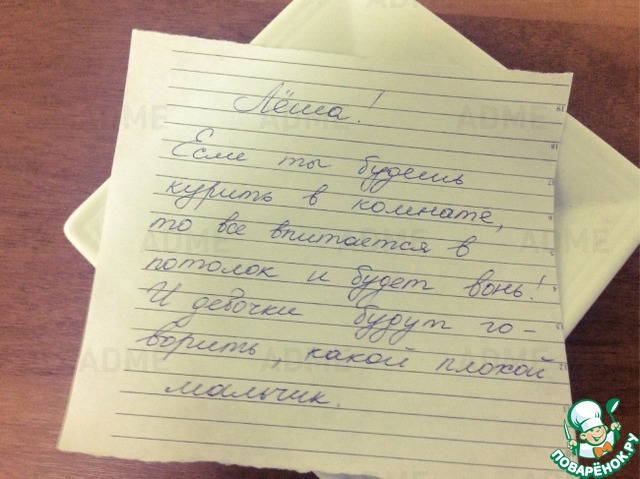 Лёша!
Если ты будешь
курить в комнате,
то все впитается в
потолок и будет вонь!
И девочки будут го-
ворить, какой плохой
мальчик.
ADME
ADME
ADME
ADME
ADME
ADME
ПОВАРЁНОК.РУ